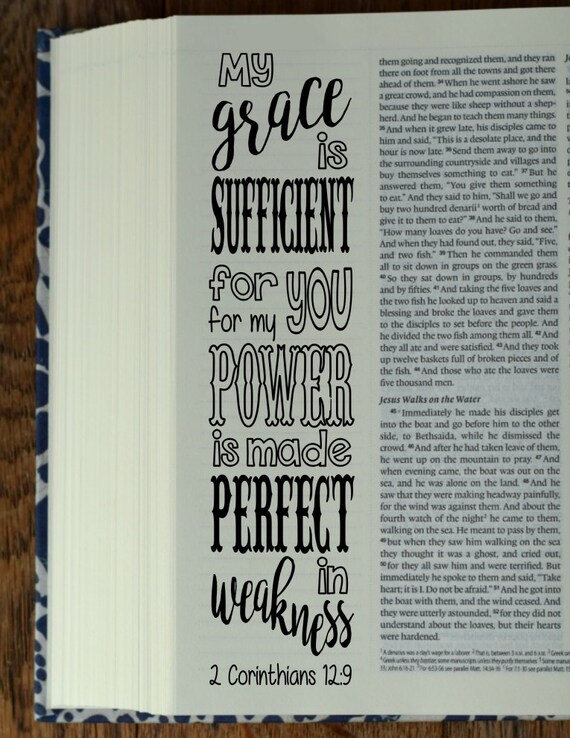 My
grace
is
SUFFICIENT
for YOU
for my
POWER
is made
PERFECT
in
weakness
2 Corinthians 12:9
them going and recognized them, and they ran
there on foot from all the towns and got there
ahead of them. 34 When he went ashore he saw
a great crowd, and he had compassion on them,
because they were like sheep without a shep-
herd. And he began to teach them many things.
35 And when it grew late, his disciples came to
him and said, "This is a desolate place, and the
hour is now late. 36 Send them away to go into
the surrounding countryside and villages and
buy themselves something to eat." 37 But he
answered them, "You give them something
to eat." And they said to him, "Shall we go and
buy two hundred denarii1 worth of bread and
give it to them to eat?" 38 And he said to them,
"How many loaves do you have? Go and see."
And when they had found out, they said, "Five,
and two fish." 39 Then he commanded them
all to sit down in groups on the green grass.
40 So they sat down in groups, by hundreds
and by fifties. 41 And taking the five loaves and
the two fish he looked up to heaven and said a
blessing and broke the loaves and gave them
to the disciples to set before the people. And
he divided the two fish among them all. 42 And
they all ate and were satisfied. 43 And they took
up twelve baskets full of broken pieces and of
the fish. 44 And those who ate the loaves were
five thousand men.
Jesus Walks on the Water
45 Immediately he made his disciples get
into the boat and go before him to the other
side, to Bethsaida, while he dismissed the
crowd. 46 And after he had taken leave of them,
he went up on the mountain to pray. 47 And
when evening came, the boat was out on the
sea, and he was alone on the land. 48 And he
saw that they were making headway painfully,
for the wind was against them. And about the
fourth watch of the night2 he came to them,
walking on the sea. He meant to pass by them,
49 but when they saw him walking on the sea
they thought it was a ghost, and cried out,
50 for they all saw him and were terrified. But
immediately he spoke to them and said, "Take
heart; it is I. Do not be afraid." 51 And he got into
the boat with them, and the wind ceased. And
they were utterly astounded, 52 for they did not
understand about the loaves, but their hearts
were hardened.
1 A denarius was a day's wage for a laborer 2 That is, between 3 A.M. and 6 A.M.